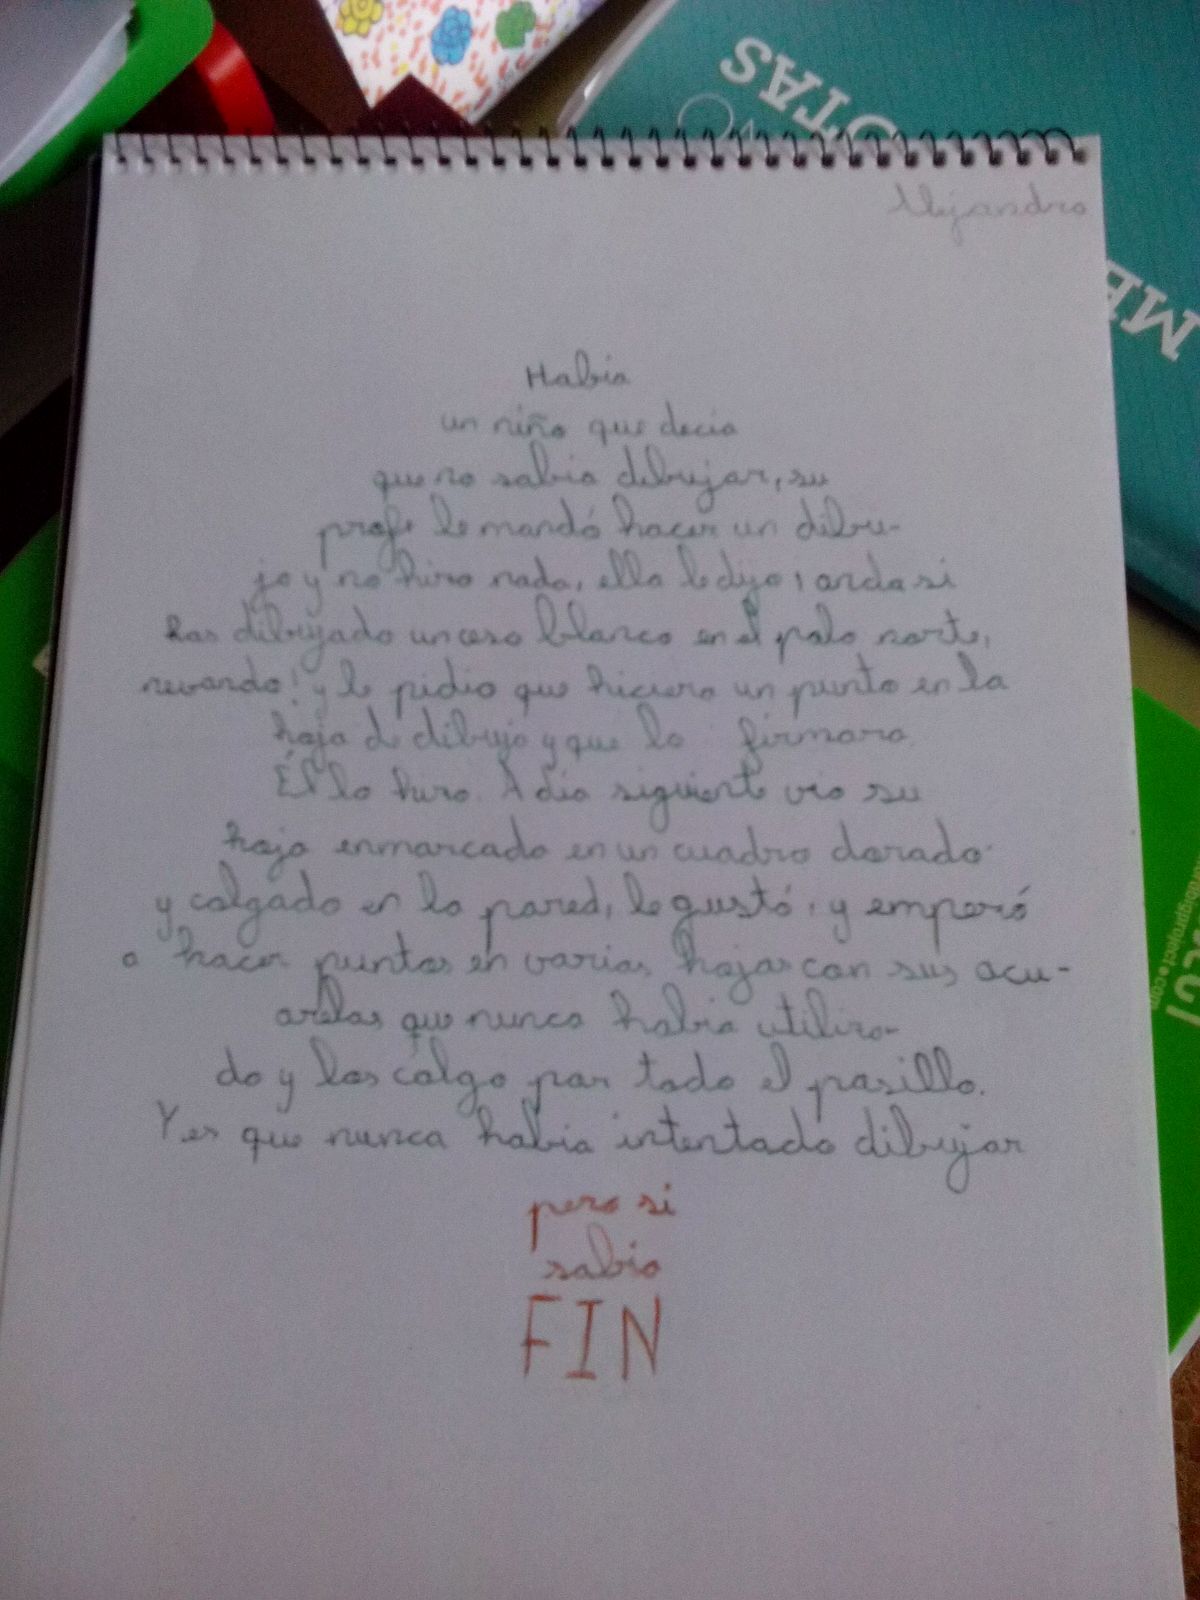 NOTAS
ME
Alejandro
Habia
un niño que decia
que no sabia dibujar, su
profe le mandó hacer un dibu-
jo y no hizo nada, ella le dijo ¡anda si
has dibujado un oso blanco en el polo norte,
nevando! y le pidio que hiciera un punto en la
hoja de dibujo y que lo firmara.
Él lo hizo. Al dia siguiente vio su
hoja enmarcado en un cuadro dorado
y colgado en la pared, le gustó, y empezó
a hacer puntos en varias hojas con sus acu-
arelas que nunca habia utiliza-
do y las colgo por todo el pasillo.
Y es que nunca habia intentado dibujar
pero si
sabia
FIN